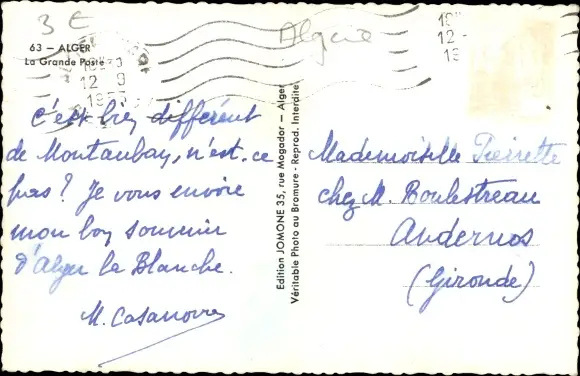 3 €
Algérie
63 — ALGER
La Grande Poste
12 - 9
c'est bien différent
de Montauban, n'est-ce
pas ? Je vous envoie
mon bon souvenir
d'Alger la Blanche.
M. Casanova
Edition JOMONE 35, rue Mogador — Alger
Véritable Photo au Bromure - Reprod. Interdite
Mademoiselle Pierrette
chez M. Boulestreau
Andernos
(Gironde)